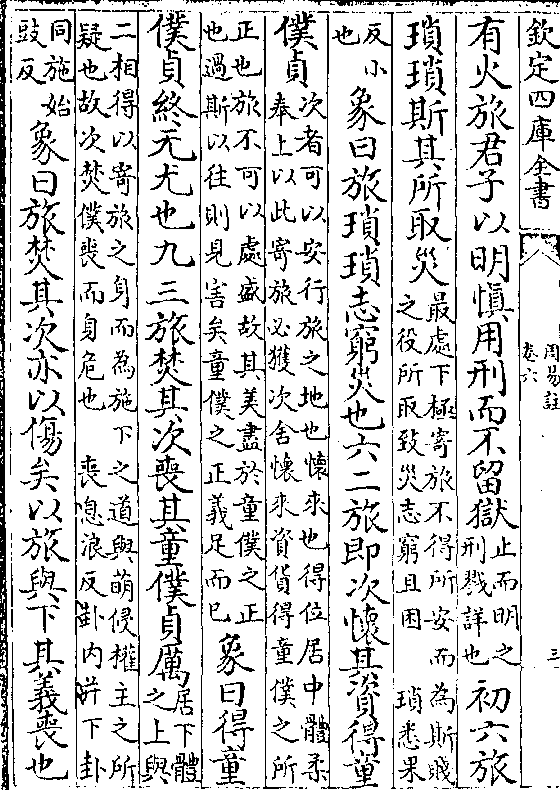 欽定四庫全書 周易註 卷六 三
有火旅君子以明慎用刑而不留獄止而明之刑戮詳也初六旅
瑣瑣斯其所取災最處下極寄旅不得所安而為斯賤之役所取致災志窮且困 瑣悉果
反小也象曰旅瑣瑣志窮災也六二旅即次懷其資得童
僕貞次者可以安行旅之地也懷來也得位居中體柔奉上以此寄旅必獲次舍懷來資貨得童僕之所
正也旅不可以處盛故其美盡於童僕之正也過斯以往則見害矣童僕之正義足而已象曰得童
僕貞終无尤也九三旅焚其次喪其童僕貞厲居下體之上與
二相得以寄旅之身而為施下之道與萌侵權主之所疑也故次焚僕喪而身危也 喪息浪反卦内并下卦
同施始豉反象曰旅焚其次亦以傷矣以旅與下其義喪也